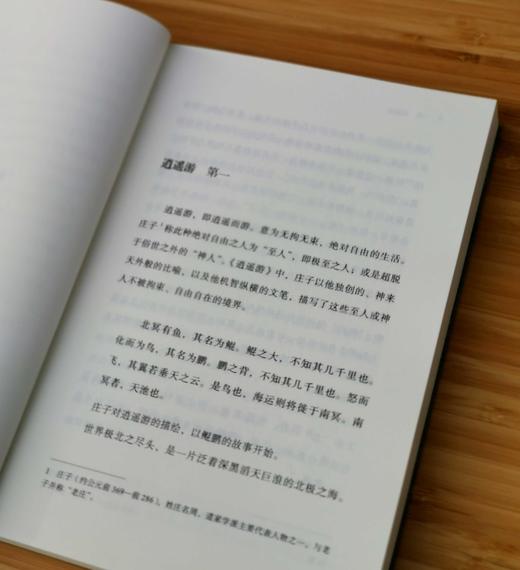 逍遥游 第一
逍遥游，即逍遥而游。意为无拘无束，绝对自由的生活。
庄子¹称此种绝对自由之人为“至人”，即极至之人；或是超脱
于俗世之外的“神人”。《逍遥游》中，庄子以他独创的、神来
天外般的比喻，以及他机智纵横的文笔，描写了这些至人或神
人不被拘束、自由自在的境界。
北冥有鱼，其名为鲲。鲲之大，不知其几千里也。
化而为鸟，其名为鹏。鹏之背，不知其几千里也。怒而
飞，其翼若垂天之云。是鸟也，海运则将徙于南冥。南
冥者，天池也。
庄子对逍遥游的描绘，以鲲鹏的故事开始。
世界极北之尽头，是一片泛着深黑滔天巨浪的北极之海。
1 庄子（约公元前369—前286），姓庄名周，道家学派主要代表人物之一，与老
子并称“老庄”。